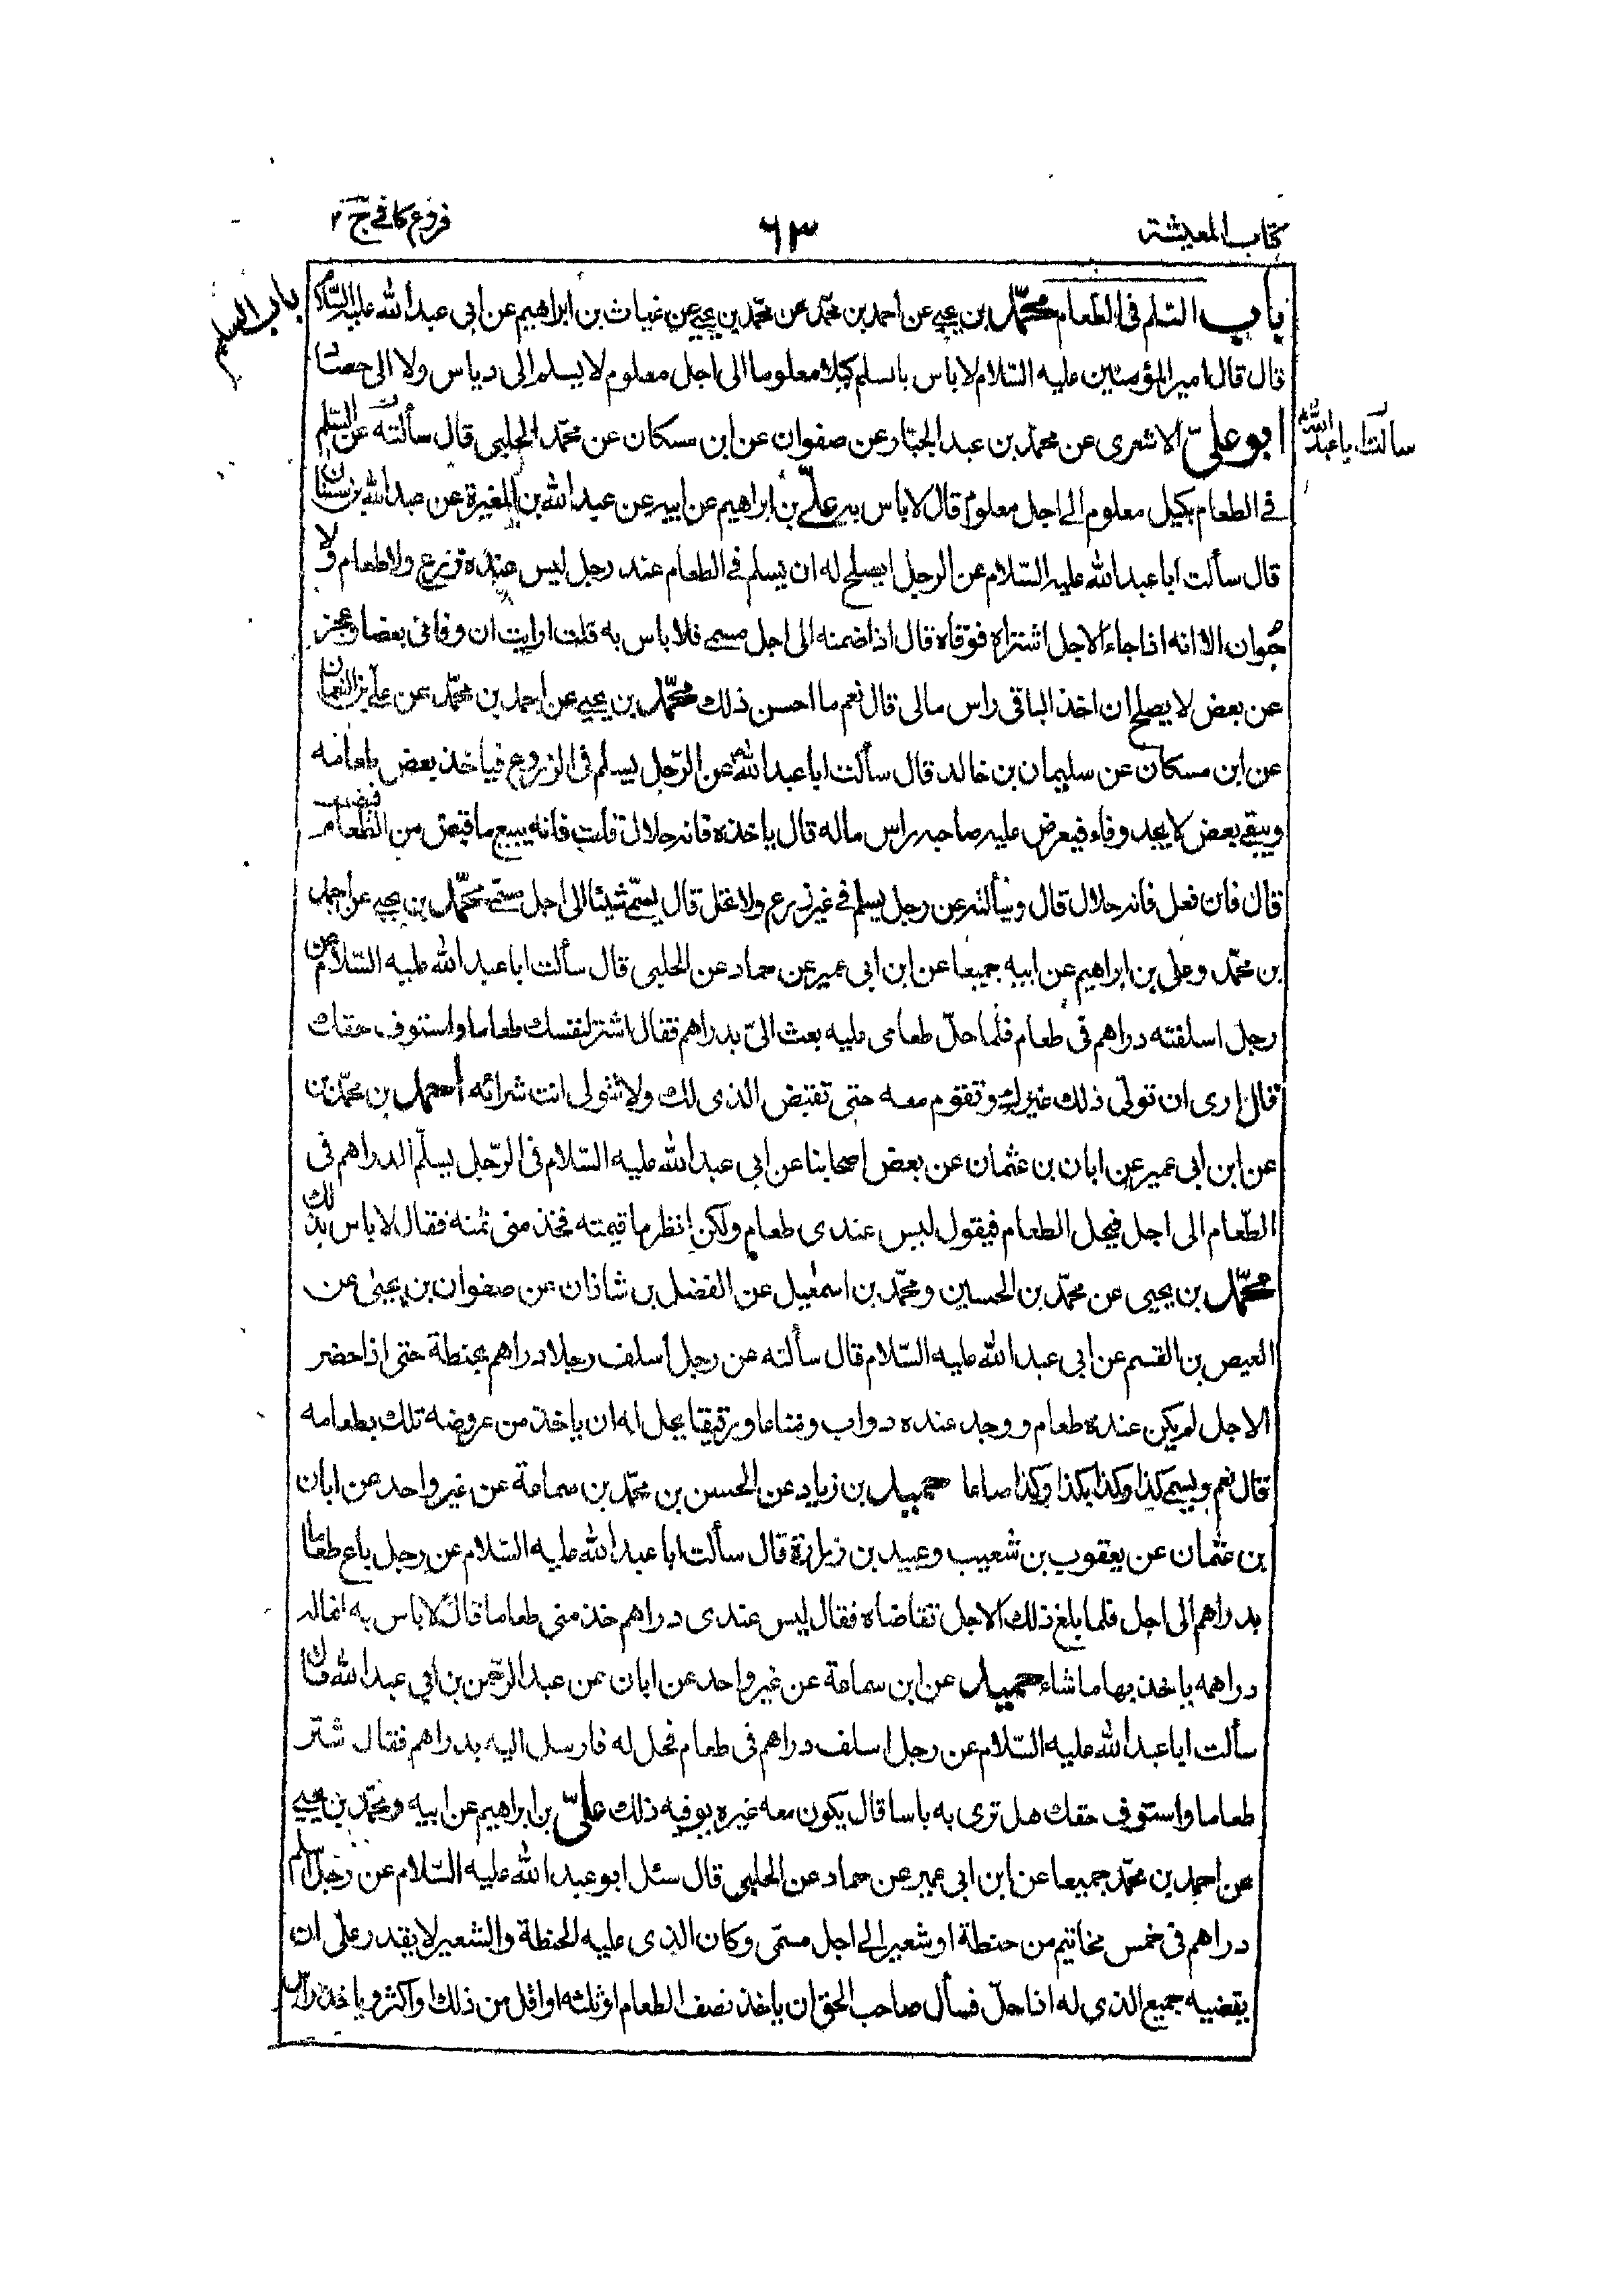 كتاب المعيشة
٦٣
فروع كافي ج ٢
باب السلم
باب السّلم فى الطعام محمّد بن يحيى عن احمد بن محمّد عن محمّد بن يحيى عن غياث بن ابراهيم عن ابى عبد الله عليه السّلام
قال قال امير المؤمنين عليه السّلام لا باس بالسلم كيلا معلوما الى اجل معلوم لا يسلم الى دياس ولا الى حصاد
ابو علىّ الاشعرى عن محمّد بن عبد الجبّار عن صفوان عن ابن مسكان عن محمّد الحلبى قال سألته عن السّلم
سألت ابا عبد الله
فى الطعام بكيل معلوم الى اجل معلوم قال لا باس به علىّ بن ابراهيم عن ابيه عن عبد الله بن المغيرة عن عبد الله بن سنان
قال سألت ابا عبد الله عليه السّلام عن الرجل ايصلح له ان يسلم فى الطعام عند رجل ليس عنده زرع ولا طعام ولا
حيوان الا انه اذا جاء الاجل اشتراه فوفّاه قال اذا ضمنه الى اجل مسمى فلا باس به قلت ارايت ان وفانى بعضا وعجز
عن بعض لا يصلح ان اخذ الباقى راس مالى قال نعم ما احسن ذلك محمّد بن يحيى عن احمد بن محمّد عن على بن النعمان
عن ابن مسكان عن سليمان بن خالد قال سألت ابا عبد الله عن الرّجل يسلم فى الزروع فياخذ بعض طعامه
ويبقى بعض لا يجد وفاء فيعرض عليه صاحبه راس ماله قال ياخذه فانه حلال قلت فانه يبيع ما قبض من الطعام
قال فان فعل فانه حلال قال وسألته عن رجل يسلم فى غير زرع ولا نخل قال يسمّى شيئا الى اجل مسمّى محمّد بن يحيى عن احمد
بن محمّد وعلى بن ابراهيم عن ابيه جميعا عن ابن ابى عمير عن حماد عن الحلبى قال سألت ابا عبد الله عليه السّلام عن
رجل اسلفته دراهم فى طعام فلمّا حلّ طعامى عليه بعث الىّ بدراهم فقال اشتر لنفسك طعاما واستوف حقك
قال ارى ان تولّى ذلك غيرك وتقوم معه حتى تقبض الذى لك ولا تتولى انت شرائه أحمد بن محمّد
عن ابن ابى عمير عن ابان بن عثمان عن بعض اصحابنا عن ابى عبد الله عليه السّلام فى الرّجل يسلّم الدراهم فى
الطّعام الى اجل فيحل الطعام فيقول ليس عندى طعام ولكن انظر ما قيمته فخذ منى ثمنه فقال لا باس بذلك
محمّد بن يحيى عن محمّد بن الحسين ومحمّد بن اسمعيل عن الفضل بن شاذان عن صفوان بن يحيى عن
العيص بن القسم عن ابى عبد الله عليه السّلام قال سألته عن رجل اسلف رجلا دراهم بحنطة حتى اذا حضر
الاجل لم يكن عنده طعام ووجد عنده دواب ومتاعا ورقيقا يحل له ان ياخذ من عروضه تلك بطعامه
قال نعم ويسمى كذا وكذا بكذا وكذا صاعا حميد بن زياد عن الحسن بن محمّد بن سماعة عن غير واحد عن ابان
بن عثمان عن يعقوب بن شعيب وعبيد بن زرارة قال سألت ابا عبد الله عليه السّلام عن رجل باع طعاما
بدراهم الى اجل فلما بلغ ذلك الاجل تقاضاه فقال ليس عندى دراهم خذ منى طعاما قال لا باس به انما له
دراهمه ياخذ بها ما شاء حميد عن ابن سماعة عن غير واحد عن ابان عن عبد الرّحمن بن ابى عبد الله قال
سألت ابا عبد الله عليه السّلام عن رجل اسلف دراهم فى طعام فحل له فارسل اليه بدراهم فقال شتر
طعاما واستوف حقك هل ترى به باسا قال يكون معه غيره يوفيه ذلك علىّ بن ابراهيم عن ابيه ومحمّد بن يحيى
عن احمد بن محمّد جميعا عن ابن ابى عمير عن حماد عن الحلبى قال سئل ابو عبد الله عليه السّلام عن رجل اسلم
دراهم فى خمس مخاتيم من حنطة او شعير الى اجل مسمّى وكان الذى عليه الحنطة والشعير لا يقدر على ان
يقضيه جميع الذى له اذا حلّ فسأل صاحب الحق ان ياخذ نصف الطعام او ثلثه او اقل من ذلك او اكثر وياخذ راس